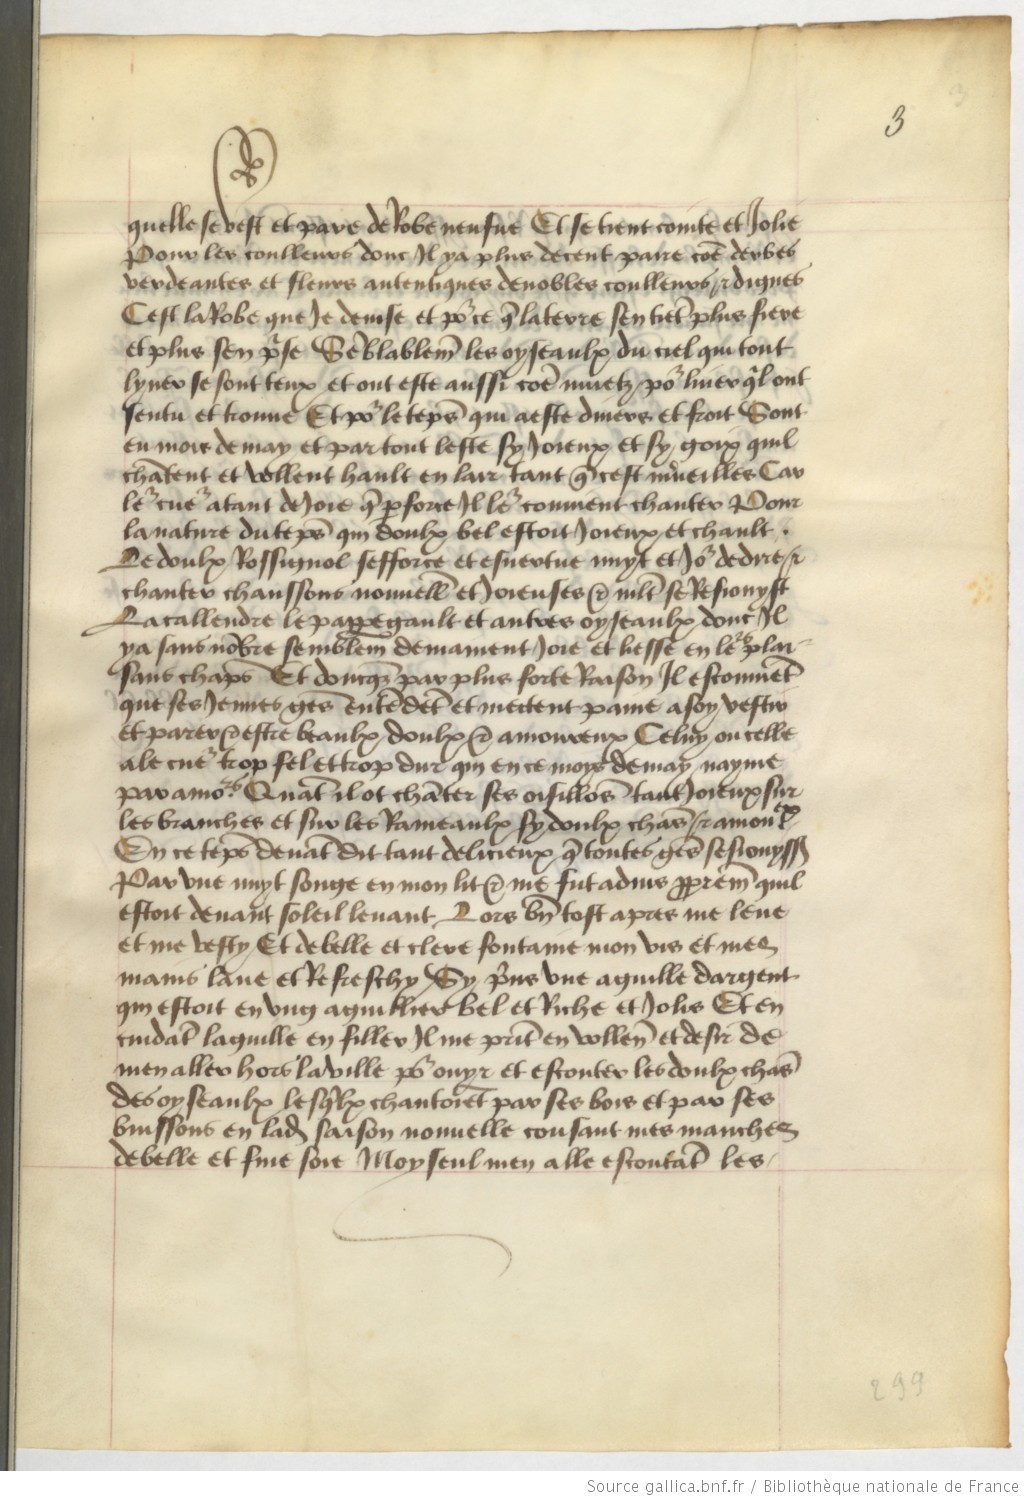 3
quelle se vest et pare de Robe neufue Et se tient cointe et Jolie
Pour les coulleurs donc Il ya plus de cent paire coe derbes
verdeantes et fleurs autentiques de nobles coulleurs et dignes
Cest la Robe que Je deuise et por ce q la terre sen tiet plus fiere
et plus sen prise Seblablemt les oyseaulx du ciel qui tout
lyuer se sont teux et ont este aussi coe muetz por liuer ql ont
sentu et trouue Et por le teps qui a este diuers et froit Sont
en mois de may et par tout leste sy Joieux et sy goix quil
chatent et vollent hault en lair tant q cest mueilles Car
ler cuer a tant de Joie q p force Il ler conuient chanter Pour
la nature du teps qui doulx bel estoit Joieux et chault .
Le doulx Rossignol sefforce et esuertue nuyt et Jor de dire et
chanter chanssons nouuell et Joieuses et mlt se Resiouyst
La callendre le pappegault et autres oyseaulx donc Il
ya sans nobre semblem demainent Joie et liesse en lers plai-
sans chaps Et doncqz par plus forte Raison Il esconuiet
que ses Jeunes ges entedet et mectent paine a soy vestir
et parer et estre beaulx doulx et amoureux Celuy ou celle
a le cuer trop fel et trop dur qui en ce moys de may nayme
par amors Quat il ot chater ses oisillos tant Joieux sur
les branches et sur les Rameaulx sy doulx chas et amoureux
En ce teps deuat dit tant delicieux q toutes ges sesiouyss
Par vne nuyt songe en mon lit et me fut aduis pprem quil
estoit deuant soleil leuant Lors bn tost apres me leue
et me vesty Et de belle et clere fontaine mon vis et mes
mains laue et Refreschy Sy prins vne aguille dargent
qui estoit en vng aguillier bel et Riche et Jolis Et en
cuidat laguille en filler Il me prit en vollen et desir de
men aller hors la ville por ouyr et escouter les doulx chas
des oyseaulx lesqlx chantoiet par ses bois et par ses
buissons en lad saison nouuelle cousant mes manches
de belle et fine soie Moy seul men alle escoutat les
299
Source gallica.bnf.fr / Bibliothèque nationale de France